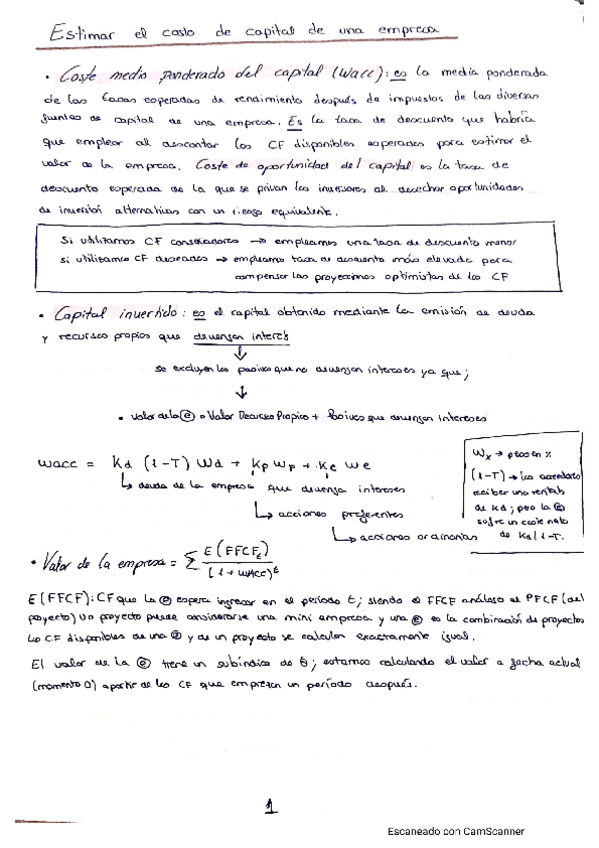 Estimar el costo de capital de una empresa
• Coste medio ponderado del capital (Wacc): es la media ponderada
de las tasas esperadas de rendimiento después de impuestos de las diversas
fuentes de capital de una empresa. Es la tasa de descuento que habría
que emplear al descontar los CF disponibles esperados para estimar el
valor de la empresa. Coste de oportunidad del capital es la tasa de
descuento esperada de la que se privan los inversores al desechar oportunidades
de inversión alternativas con un riesgo equivalente.
Si utilizamos CF conservadores → empleamos una tasa de descuento menor
si utilizamos CF deseados → empleamos tasa de descuento más elevada para
compensar las proyecciones optimistas de los CF
• Capital invertido: es el capital obtenido mediante la emisión de deuda
y recursos propios que devengan interés
↓
se excluyen los pasivos que no devengan intereses ya que;
↓
• Valor de la (e) = Valor Recursos Propios + Pasivos que devengan intereses
WACC = Kd (1-T) Wd + Kp Wp + Ke We
↳ deuda de la empresa que devenga intereses
↳ acciones preferentes
↳ acciones ordinarias
Wx → peso en %
(1-T) → los acreedores
reciben una rentab
de Kd; pero la (e)
sufre un coste neto
de Kd(1-T.
• Valor de la empresa = Σ E(FFCFt) / (1+WACC)^t
E(FFCF): CF que la (e) espera ingresar en el período t; siendo el FFCF análogo al PFCF (del
proyecto) Un proyecto puede considerarse una mini empresa y una (e) es la combinación de proyectos
los CF disponibles de una (e) y de un proyecto se calculan exactamente igual.
El valor de la (e) tiene un subíndice de 0; estamos calculando el valor a fecha actual
(momento 0) a partir de los CF que empiezan un período después.
1
Escaneado con CamScanner